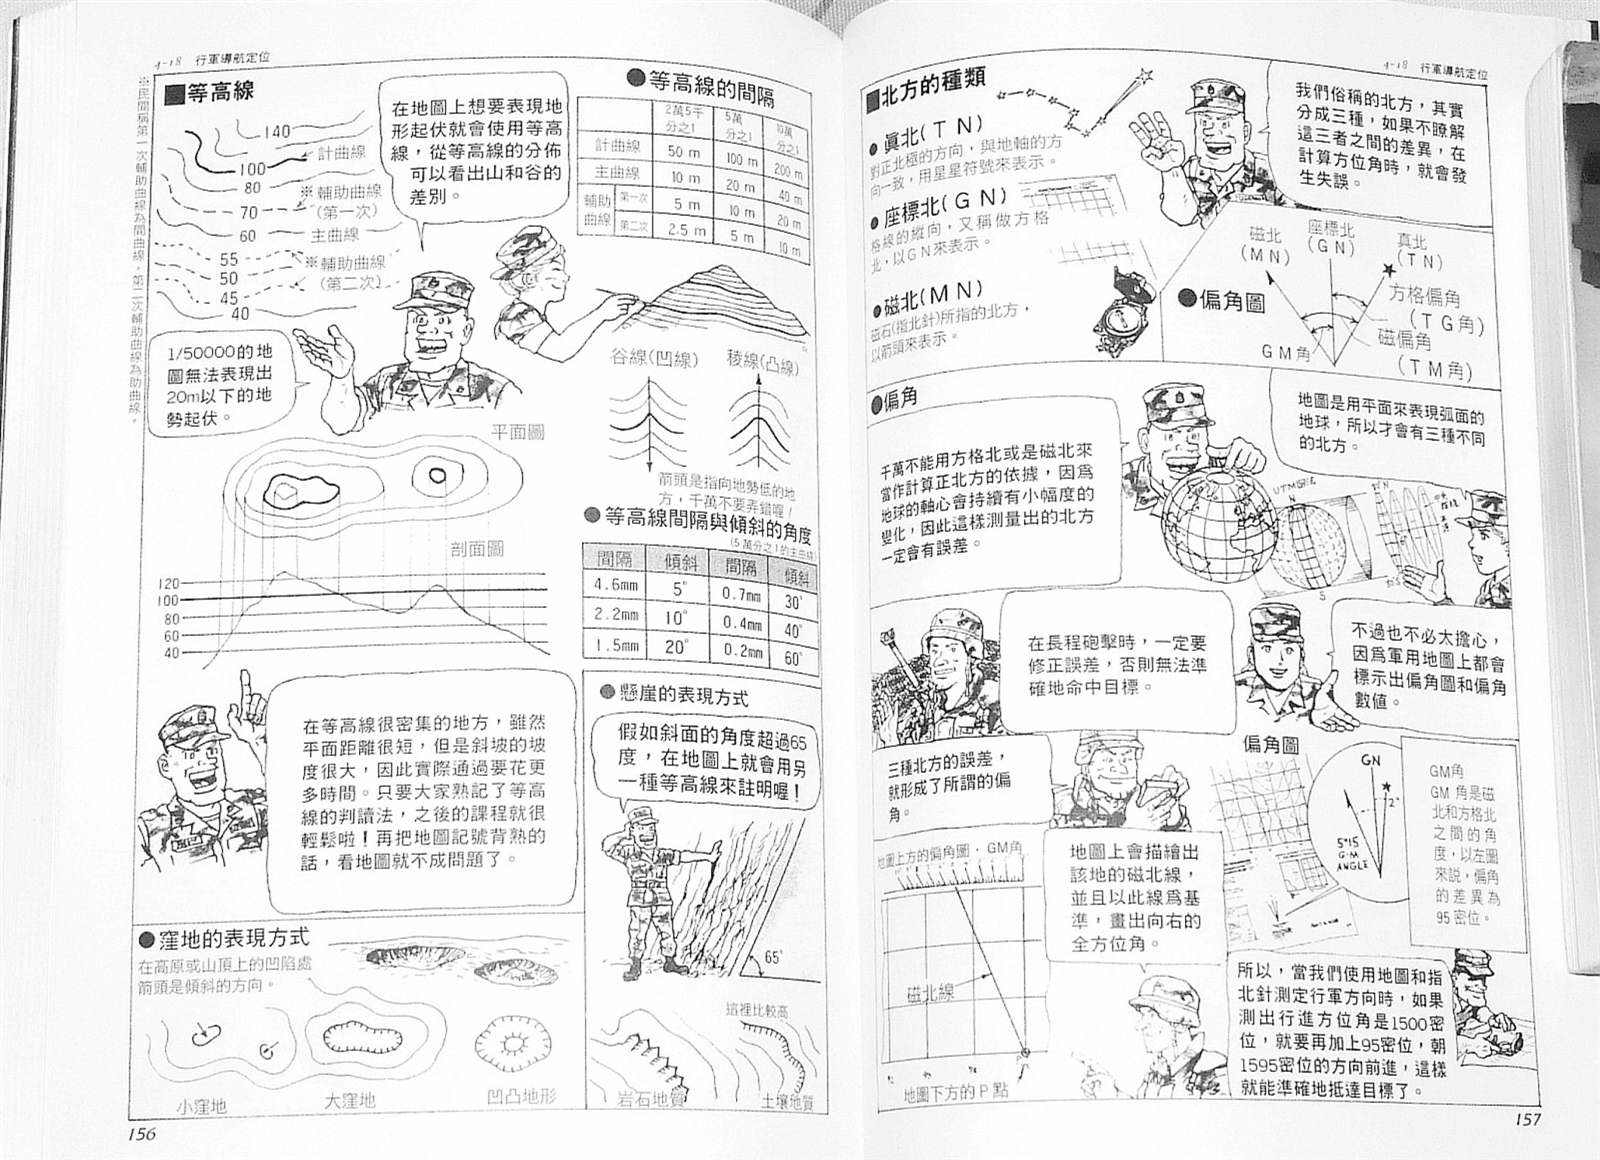 4-18 行軍導航定位
※民間稱第一次輔助曲線為間曲線，第二次輔助曲線為助曲線。
■等高線
140
計曲線
100
80
※輔助曲線
70
(第一次)
60
主曲線
55
※輔助曲線
50
(第二次)
45
40
在地圖上想要表現地
形起伏就會使用等高
線，從等高線的分佈
可以看出山和谷的
差別。
●等高線的間隔
2萬5千分之1 5萬分之1 10萬分之1
計曲線 50 m 100 m 200 m
主曲線 10 m 20 m 40 m
輔助曲線 第一次 5 m 10 m 20 m
第二次 2.5 m 5 m 10 m
1/50000的地
圖無法表現出
20m以下的地
勢起伏。
谷線(凹線) 稜線(凸線)
箭頭是指向地勢低的地
方，千萬不要弄錯喔！
平面圖
剖面圖
120
100
80
60
40
●等高線間隔與傾斜的角度
(5萬分之1的主曲線)
間隔 傾斜 間隔 傾斜
4.6mm 5° 0.7mm 30°
2.2mm 10° 0.4mm 40°
1.5mm 20° 0.2mm 60°
在等高線很密集的地方，雖然
平面距離很短，但是斜坡的坡
度很大，因此實際通過要花更
多時間。只要大家熟記了等高
線的判讀法，之後的課程就很
輕鬆啦！再把地圖記號背熟的
話，看地圖就不成問題了。
●懸崖的表現方式
假如斜面的角度超過65
度，在地圖上就會用另
一種等高線來註明喔！
65°
這裡比較高
岩石地質
土壤地質
●窪地的表現方式
在高原或山頂上的凹陷處
箭頭是傾斜的方向。
小窪地
大窪地
凹凸地形
156
4-18 行軍導航定位
■北方的種類
●真北(TN)
對正北極的方向，與地軸的方
向一致，用星星符號來表示。
●座標北(GN)
格線的縱向，又稱做方格
北，以GN來表示。
●磁北(MN)
磁石(指北針)所指的北方，
以箭頭來表示。
我們俗稱的北方，其實
分成三種，如果不瞭解
這三者之間的差異，在
計算方位角時，就會發
生失誤。
磁北
(MN)
座標北
(GN)
真北
(TN)
●偏角圖
方格偏角
(TG角)
磁偏角
(TM角)
GM角
●偏角
千萬不能用方格北或是磁北來
當作計算正北方的依據，因為
地球的軸心會持續有小幅度的
變化，因此這樣測量出的北方
一定會有誤差。
地圖是用平面來表現弧面的
地球，所以才會有三種不同
的北方。
N
S
在長程砲擊時，一定要
修正誤差，否則無法準
確地命中目標。
不過也不必太擔心，
因為軍用地圖上都會
標示出偏角圖和偏角
數值。
三種北方的誤差，
就形成了所謂的偏
角。
偏角圖
GN
2°
5°15
G-M
ANGLE
GM角
GM 角是磁
北和方格北
之間的角
度，以左圖
來說，偏角
的差異為
95密位。
地圖上方的偏角圖．GM角
磁北線
地圖下方的P點
地圖上會描繪出
該地的磁北線，
並且以此線為基
準，畫出向右的
全方位角。
所以，當我們使用地圖和指
北針測定行軍方向時，如果
測出行進方位角是1500密
位，就要再加上95密位，朝
1595密位的方向前進，這樣
就能準確地抵達目標了。
157